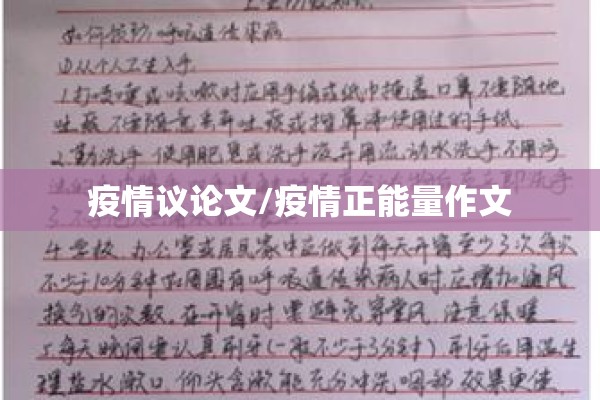 如何预防呼吸道传染病
①从个人卫生入手
1.打喷嚏或咳嗽时应用手绢或纸巾掩盖口鼻不要随地
吐痰 不要随意丢弃吐痰或揩鼻涕使用过的手纸.
2.勤洗手 使用肥皂或洗手液并用流动水洗手.不用污
洗手
疫情议论文/疫情正能量作文
4.学校,办公室或居民家中应做到每天开窗至少3次每次
不少于10分钟如周围有呼吸道传染病人时,应增加通风
换气的次数,在开窗时要避免穿堂风,注意保暖
5.每天晚间要认真刷牙(一般不少于3分钟)刷牙后用温生
理盐水漱口,仰头含漱能充分冲洗咽部效果更佳.